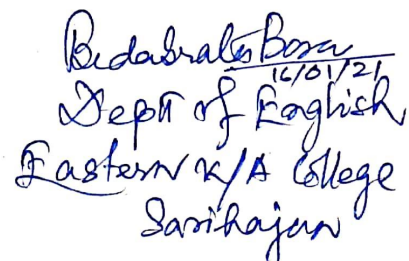 Bedabrata Bora
16/01/21
Dept of English
Eastern K/A College
Sarihajan